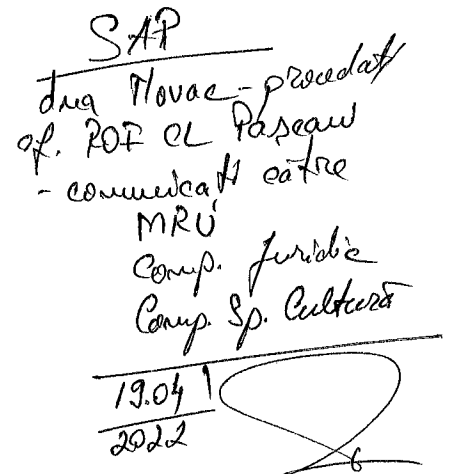 SAP
dna Novac - procedați
cf. ROF CL Pașcani
- comunicați către
MRU
Comp. Juridic
Comp. Sp. Cultură
19.04
2022